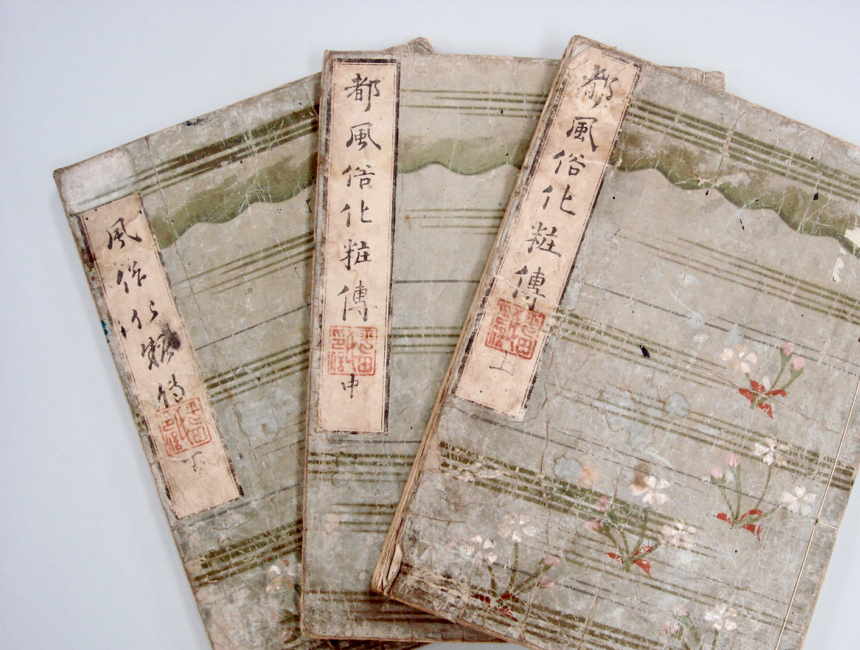 都風俗化粧傳 上
都風俗化粧傳 中
風俗化粧傳 下